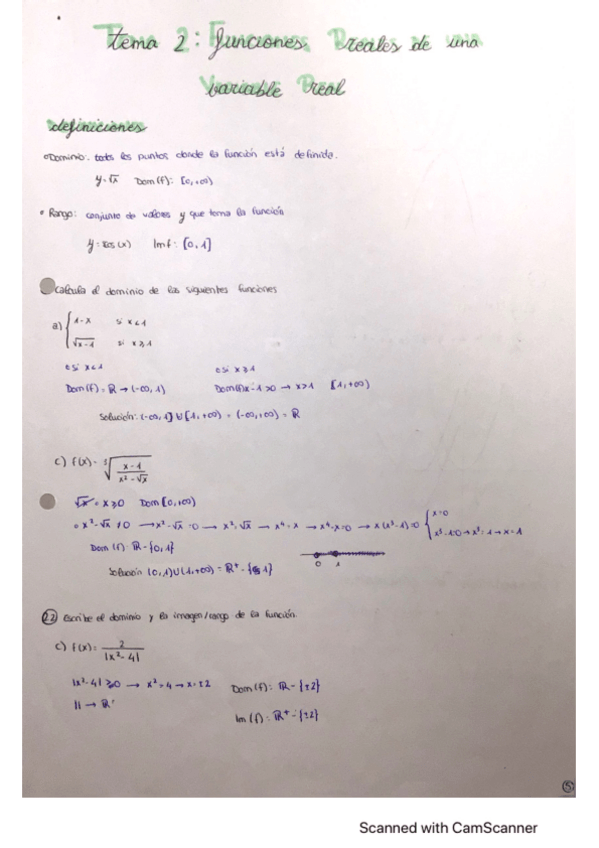 tema 2: funciones Reales de una
Variable Real
definiciones
Dominio: todos los puntos donde la función está definida.
y=√x Dom(f): [0,+∞)
• Rango: conjunto de valores y que toma la función
y=cos(x) Imf: [0,1]
Calcula el dominio de las siguientes funciones
a) { 1-x si x<1
√x-1 si x≥1
si x<1 si x≥1
Dom(f)= R → (-∞,1) x-1≥0 → x≥1 [1,+∞)
Solución: (-∞,1] ∪ [1,+∞) = (-∞,+∞) = R
c) f(x)= √ x-1 / x²-√x
√x = x≥0 Dom [0,+∞)
x²-√x ≠0 → x²-√x=0 → x²=√x → x⁴=x → x⁴-x=0 → x(x³-1)=0 { x=0
x³-1=0 → x³=1 → x=1
Dom (f): R-{0,1}
0 1
Solución (0,1)∪(1,+∞) = R⁺-{1}
2.2 Escribe el dominio y la imagen/rango de la función.
c) f(x)= 2 / |x²-4|
|x²-4| ≥0 → x²=4 → x=±2 Dom(f): R-{±2}
|| → R⁺
Im(f): R⁺-{±2}
5
Scanned with CamScanner